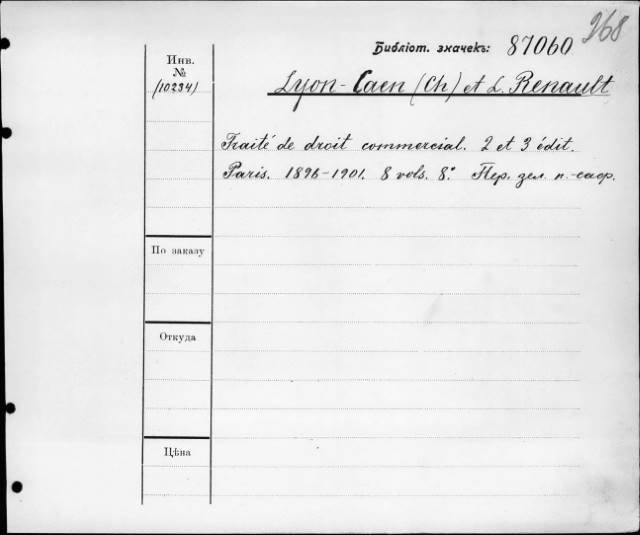 268
Библіот. значекъ: 87060
Инв.
№
(10234)
Lyon-Caen (Ch) et L. Renault
Traité de droit commercial. 2 et 3 édit.
Paris. 1896-1901. 8 vols. 8° Пер. зел. п.-саф.
По заказу
Откуда
Цѣна